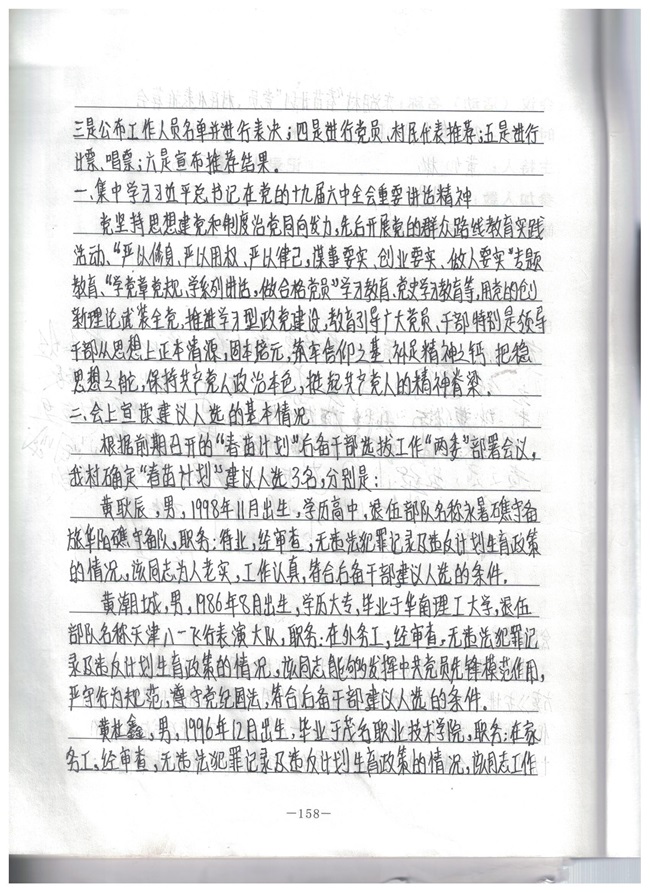 三是公布工作人员名单并进行表决；四是进行党员、村民代表推荐；五是进行
计票、唱票；六是宣布推荐结果。
一、集中学习习近平总书记在党的十九届六中全会重要讲话精神
党坚持思想建党和制度治党同向发力，先后开展党的群众路线教育实践
活动、“严以修身、严以用权、严以律己，谋事要实、创业要实、做人要实”专题
教育、“学党章党规、学系列讲话，做合格党员”学习教育、党史学习教育等，用党的创
新理论武装全党，推进学习型政党建设，教育引导广大党员、干部特别是领导
干部从思想上正本清源、固本培元，筑牢信仰之基、补足精神之钙、把稳
思想之舵，保持共产党人政治本色，挺起共产党人的精神脊梁。
二、会上宣读建议人选的基本情况
根据前期召开的“春苗计划”后备干部选拔工作“两委”部署会议，
我村确定“春苗计划”建议人选3名，分别是：
黄耿辰，男，1998年11月出生，学历高中，退伍部队名称永暑礁守备
旅华阳礁守备队，职务：待业，经审查，无违法犯罪记录及违反计划生育政策
的情况，该同志为人老实，工作认真，符合后备干部建议人选的条件。
黄潮城，男，1986年8月出生，学历大专，毕业于华南理工大学，退伍
部队名称天津八一飞行表演大队，职务：在外务工，经审查，无违法犯罪记
录及违反计划生育政策的情况，该同志能够发挥中共党员先锋模范作用，
严守行为规范，遵守党纪国法，符合后备干部建议人选的条件。
黄桂鑫，男，1996年12月出生，毕业于茂名职业技术学院，职务：在家
务工，经审查，无违法犯罪记录及违反计划生育政策的情况，该同志工作
—158—